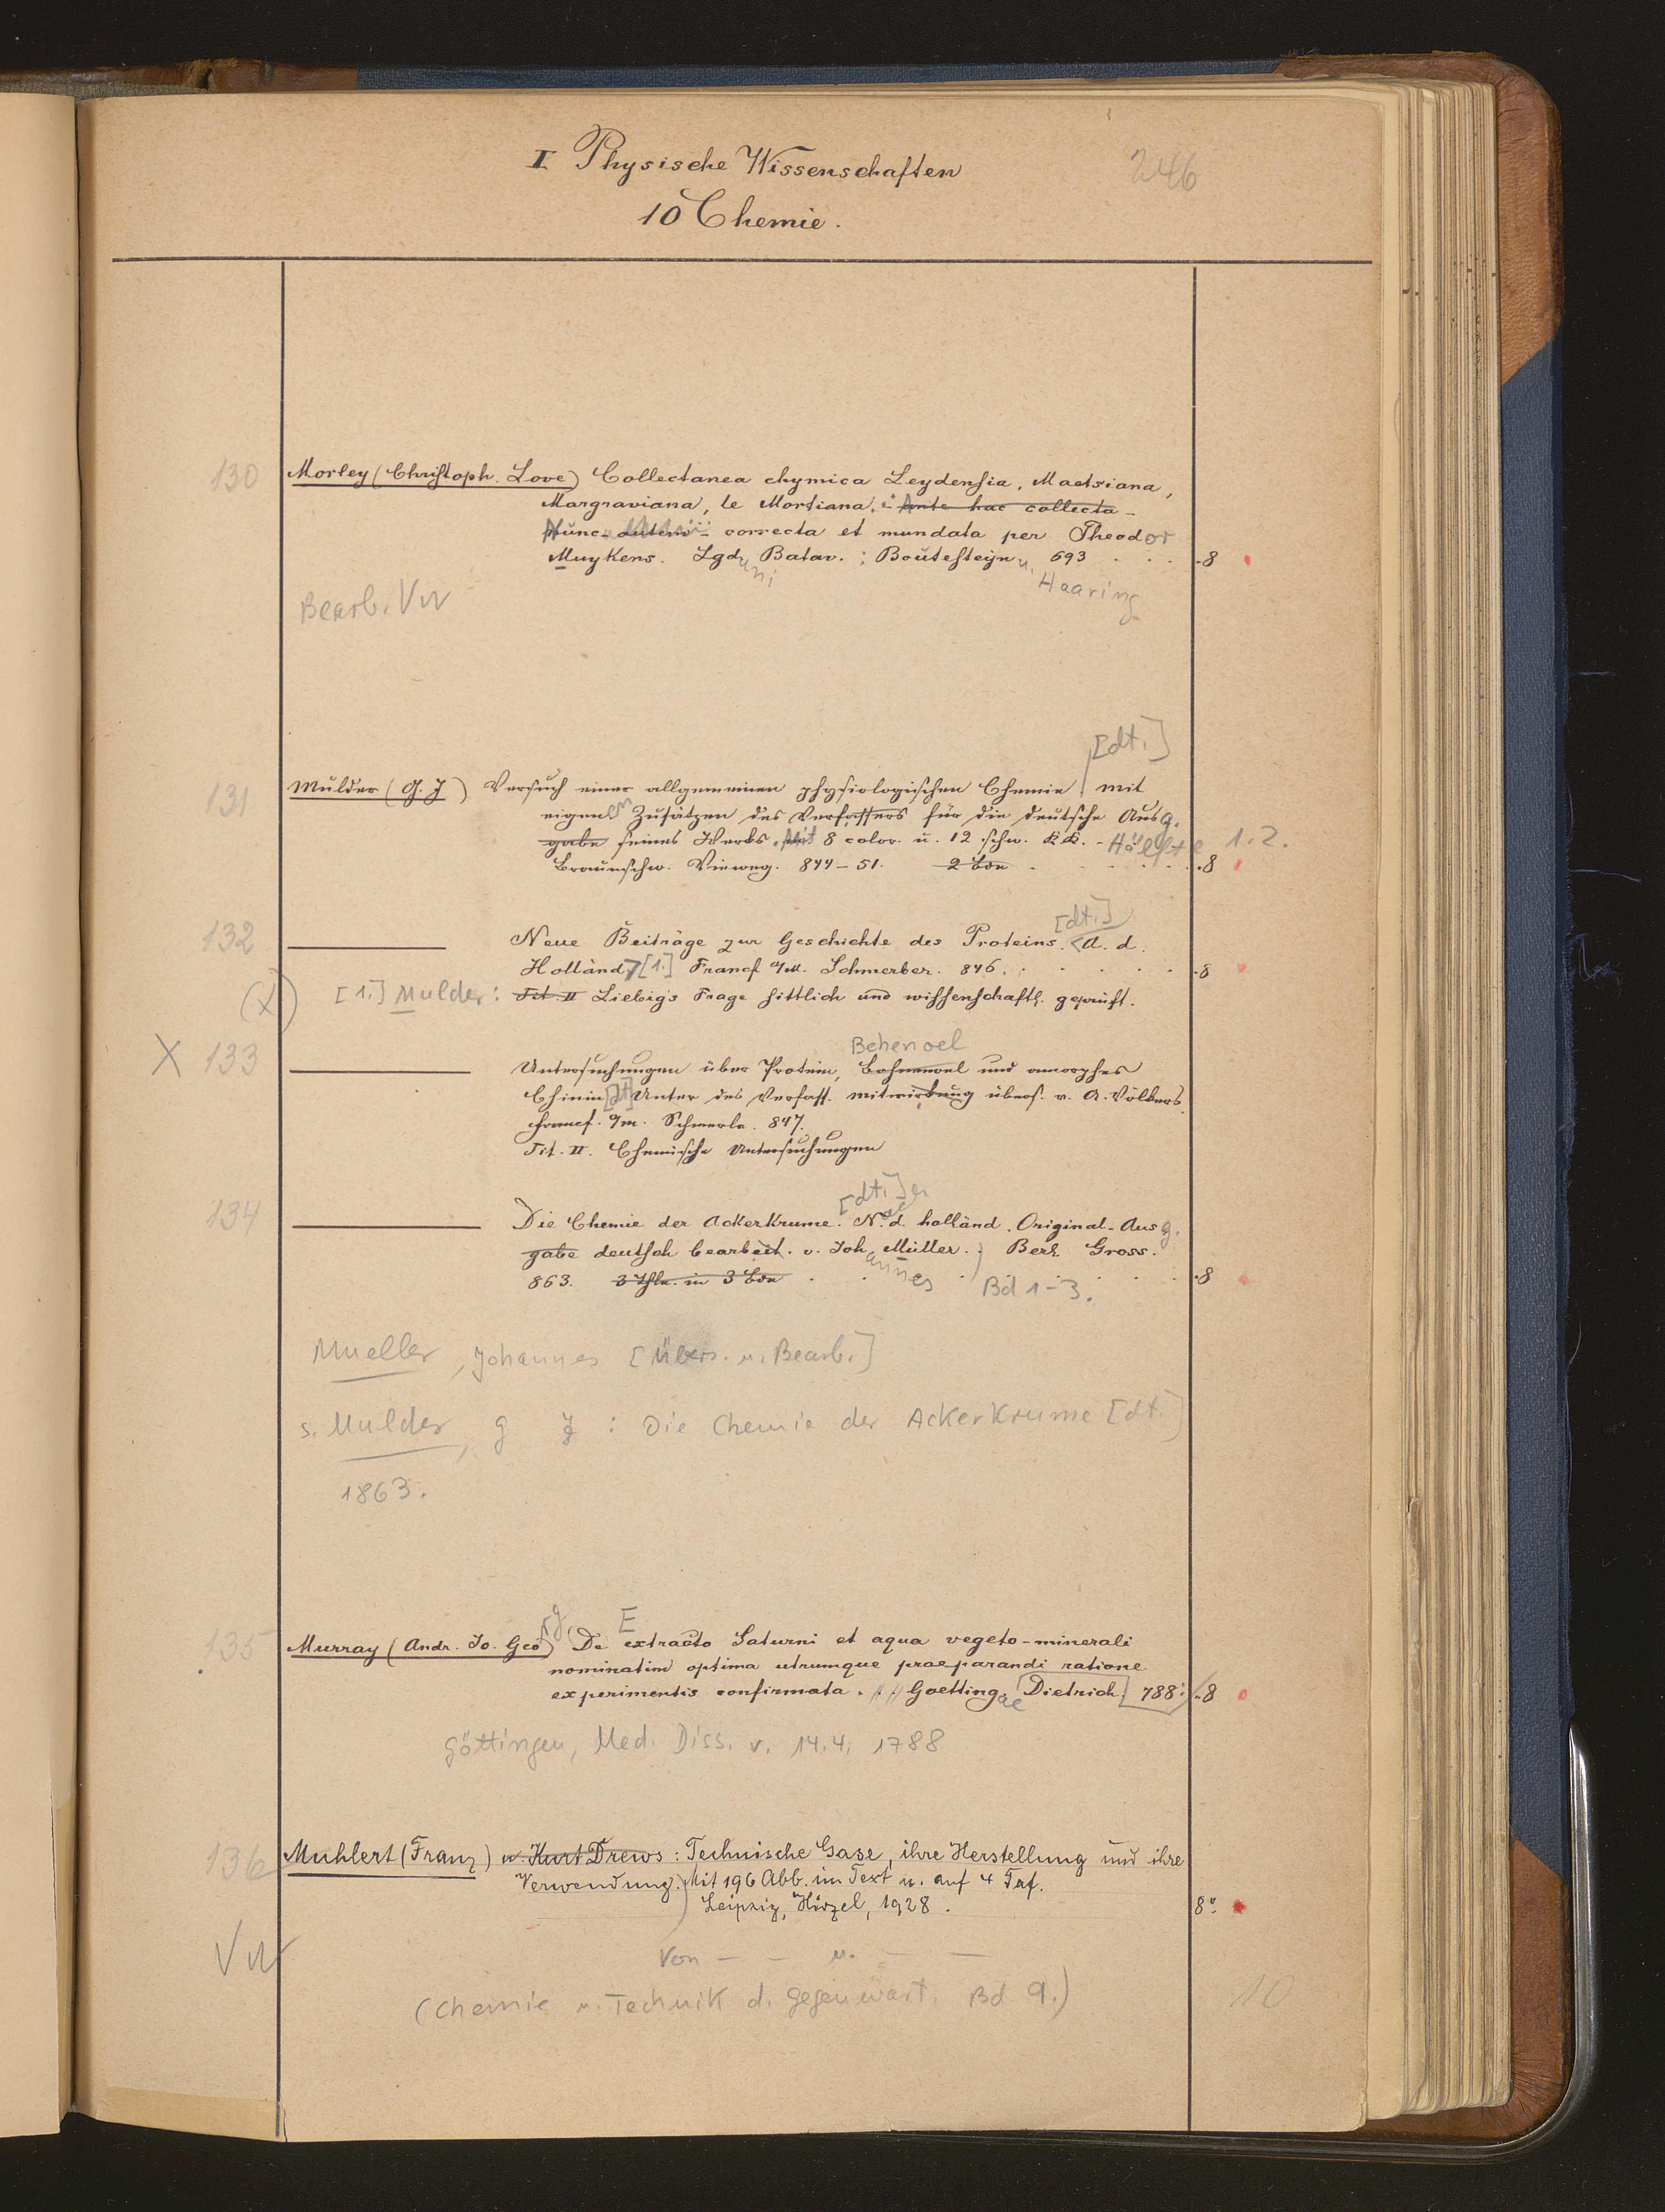 I Physische Wissenschaften 246
10 Chemie.
130 Morley (Christoph. Love) Collectanea chymica Leydensia, Maetsiana,
Margraviana, le Mortiana. Ante hac collecta -
Nunc autem - correcta et mundata per Theodor
Muykens. Lgduni Batav.: Boutesteijn u. Haaring 693 . . . 8
Bearb. VW
[dt.]
131 Mulder (G. J) Versuch einer allgemeinen physiologischen Chemie mit
eigenen Zusätzen des Verfassers für die deutsche Ausg.
gabe seines Werks. Mit 8 color. u. 12 schw. KK. - Hälfte 1.2.
Braunschw. Vieweg. 844-51. 2 Bde . . . . . 8
[dt.]
132 Neue Beiträge zur Geschichte des Proteins. A. d.
Holländ. [1.] Francf a/M. Schmerber. 846. . . . . . 8
(X) [1.] Mulder: Tit. II Liebig's Frage sittlich und wissenschaftl. geprüft.
Behenoel
X 133 Untersuchungen über Protein, Bohnenoel und amorphes
Chinin [dt] Unter des Verfass. mitwirkung übers. v. A. Völkers.
Francf. a/m. Schmerb. 847.
Tit. II. Chemische Untersuchungen
[dt.]
134 Die Chemie der Ackerkrume. N. d. holländ. Original-Ausg.
gabe deutsch bearbeit. v. Johannes Müller. Berl. Gross.
863. 3 Thle. in 3 Bde . . . Bd 1-3. . . 8
Mueller, Johannes [Übers. u. Bearb.]
s. Mulder, G J : Die Chemie der Ackerkrume [dt.]
1863.
135 Murray (Andr. Jo. Georg.) De Extracto Saturni et aqua vegeto-minerali
nominatim optima utrumque praeparandi ratione
experimentis confirmata. Goettingae Dietrich 788. 8
Göttingen, Med. Diss. v. 14.4. 1788
136 Muhlert (Franz) u. Kurt Drews: Technische Gase, ihre Herstellung und ihre
Verwendung. Mit 196 Abb. im Text u. auf 4 Taf.
Leipzig, Hirzel, 1928. 8°.
VW Von - - u. - -
(Chemie u. Technik d. Gegenwart. Bd 9.) 10